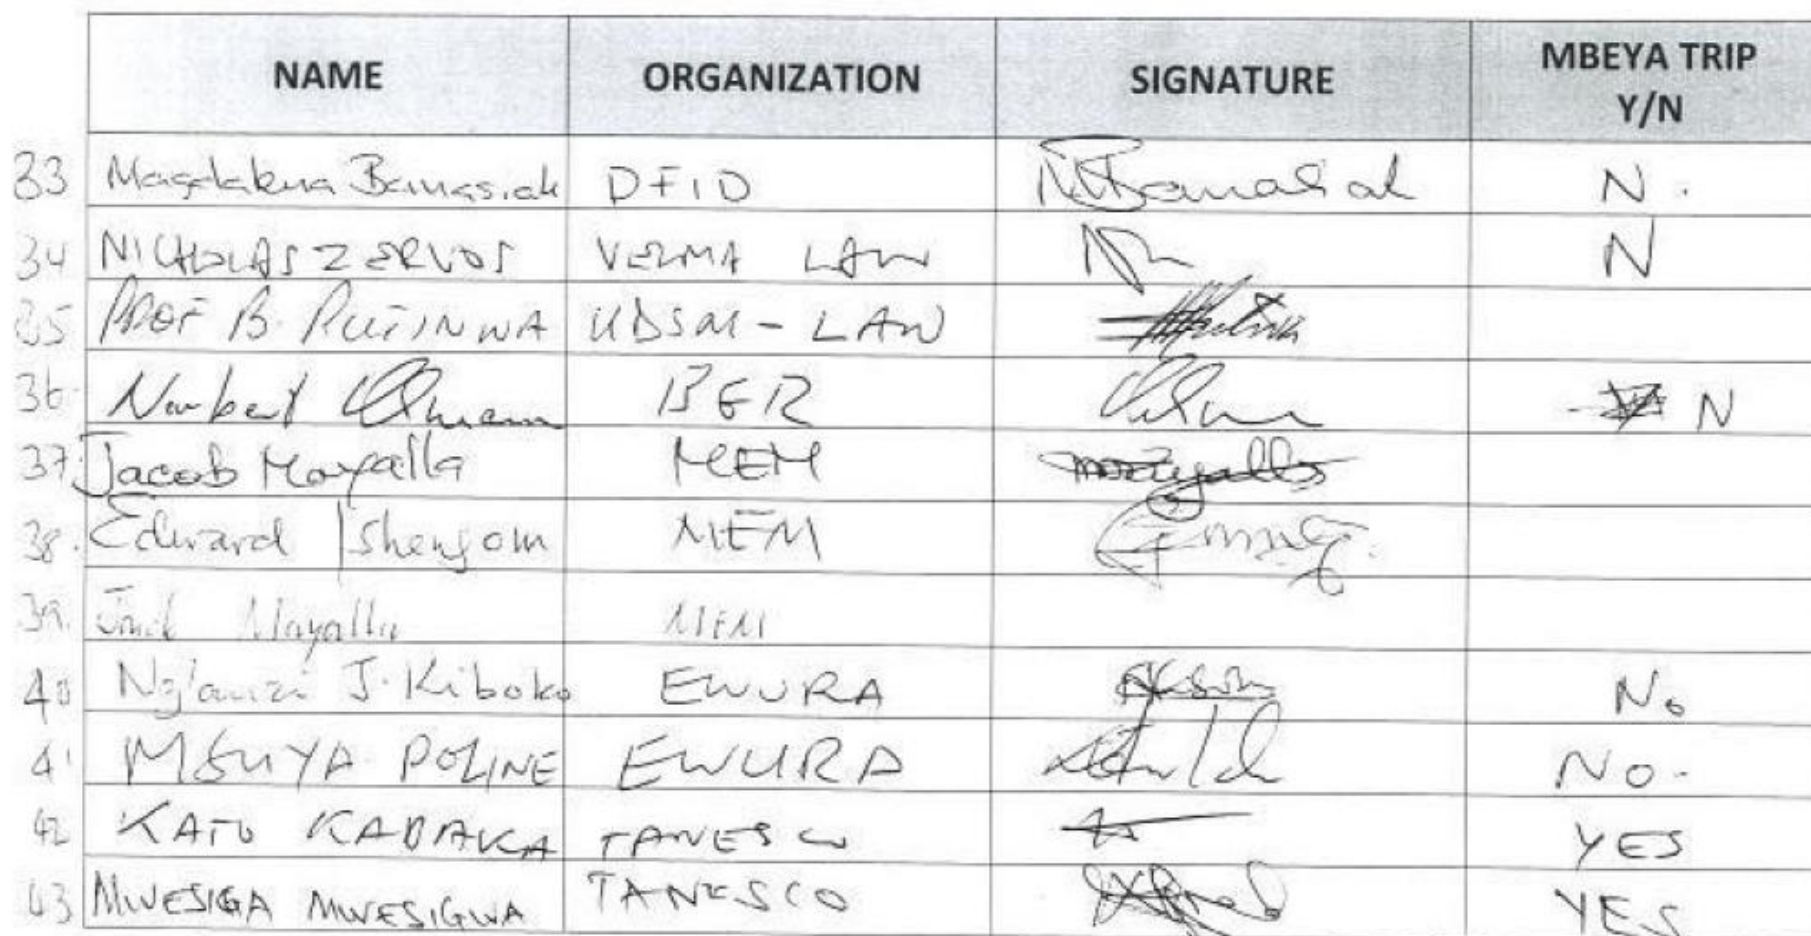 NAME ORGANIZATION SIGNATURE MBEYA TRIP Y/N
33 Magdalena Banasiak DFID MBanasiak N.
34 NICHOLAS ZERVOS VELMA LAW N
35 PROF B. RUTINWA UDSM - LAW
36. Norbert BER N
37. Jacob Mayalla MEM
38. Edward Ishengoma MEM
39. Mayalla MEM
40 Ng'anzi J. Kiboko EWURA No
41 MSUYA POLINE EWURA NO.
42 KATO KABAKA TANESCO YES
43 MWESIGA MWESIGWA TANESCO YES